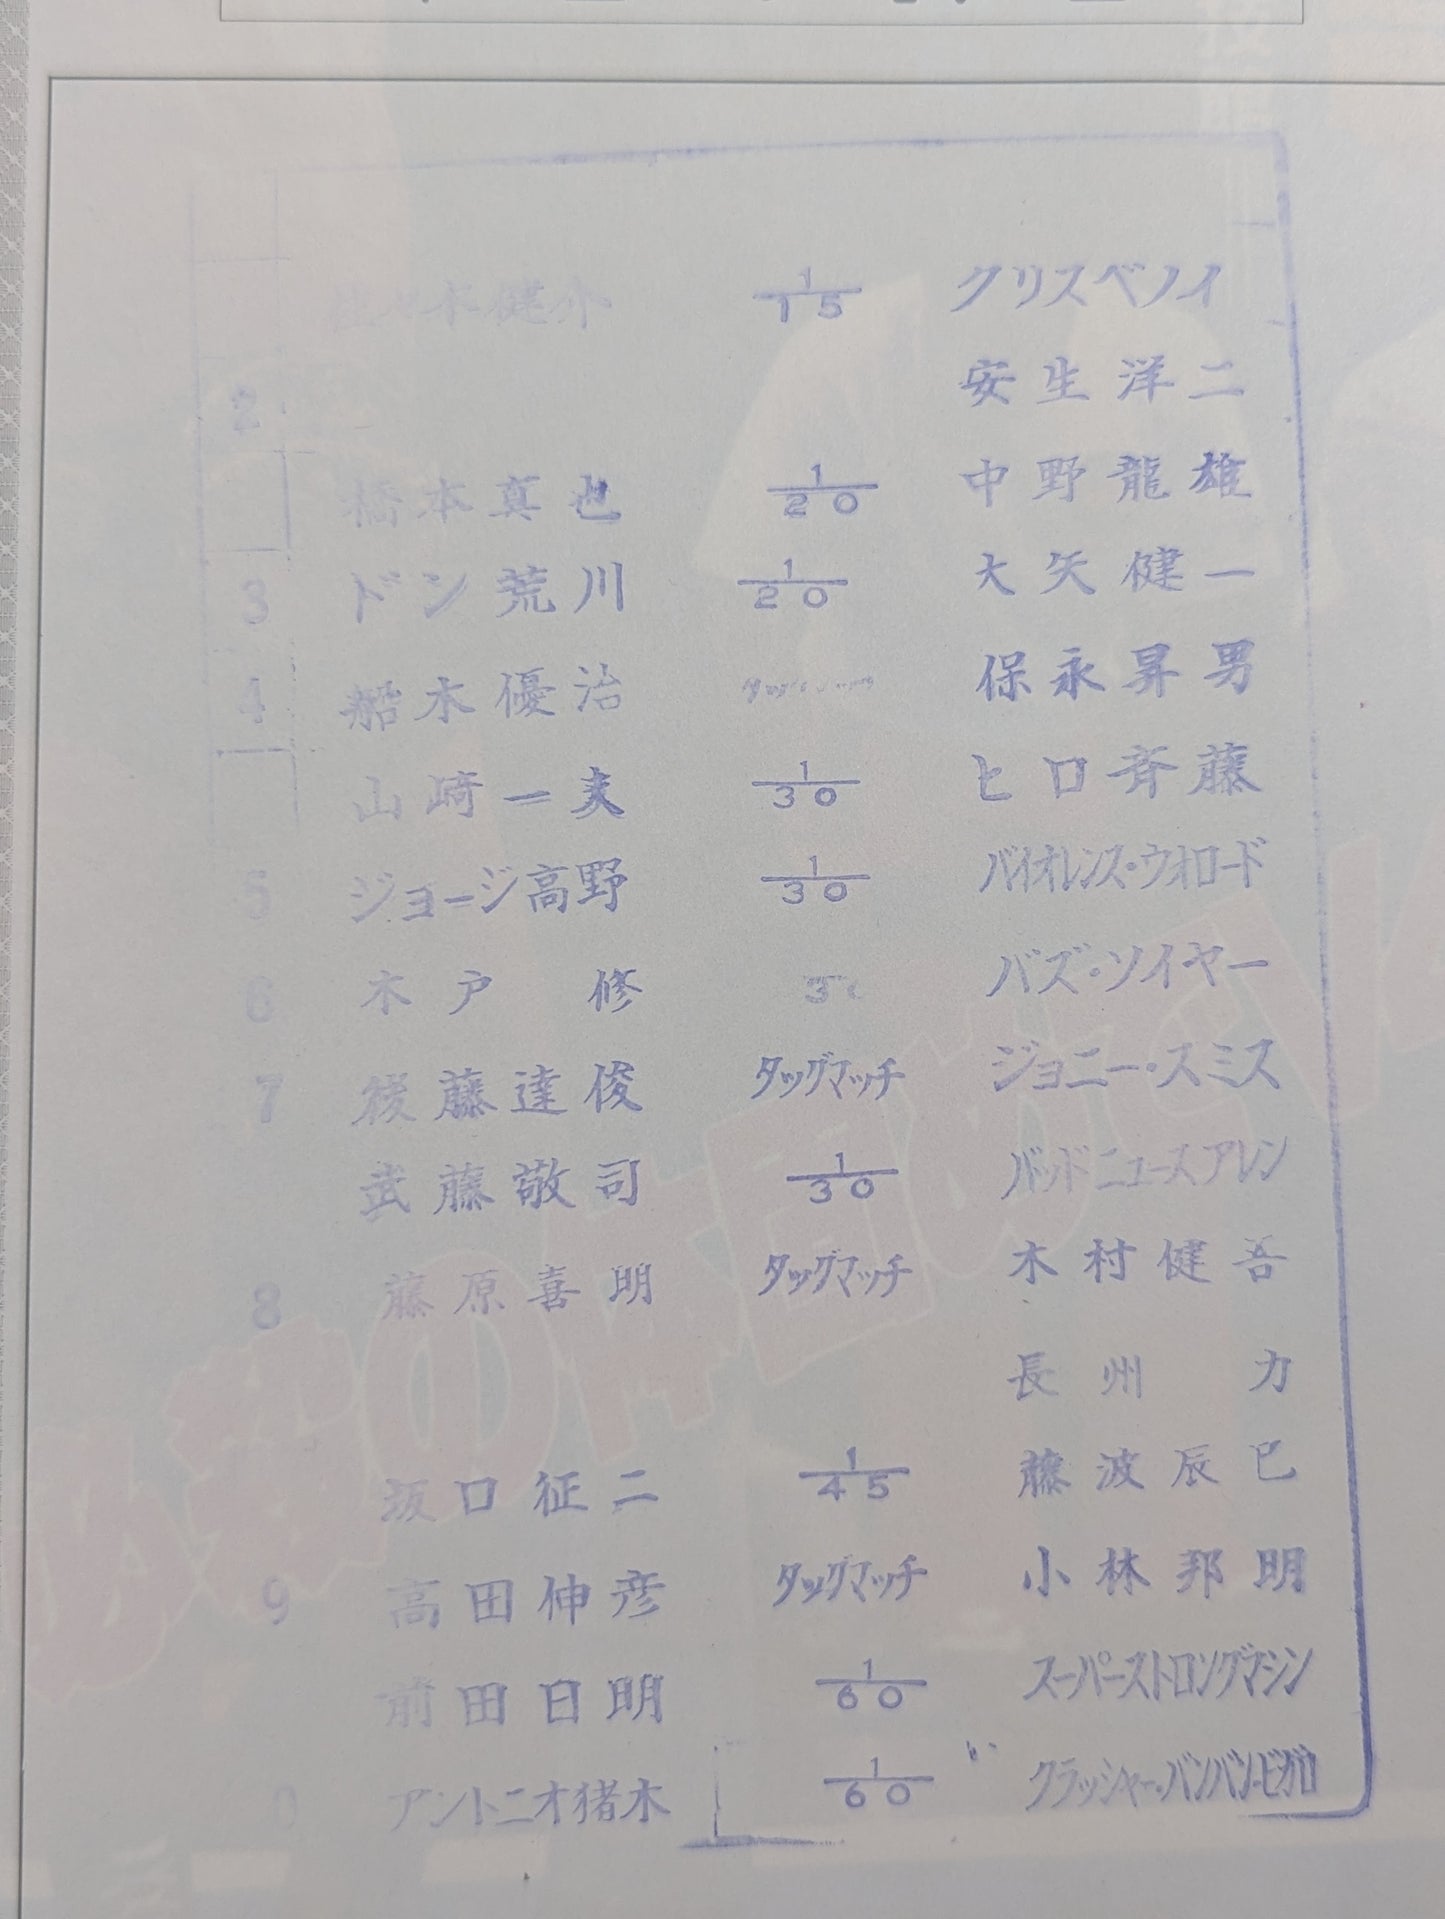 佐々木健介 1/15 クリスベノイ
2 安生洋二
橋本真也 1/20 中野龍雄
3 ドン荒川 1/20 大矢健一
4 船木優治 保永昇男
山崎一夫 1/30 ヒロ斉藤
5 ジョージ高野 1/30 バイオレンス・ウオロード
6 木戸修 バズ・ソイヤー
7 後藤達俊 タッグマッチ ジョニー・スミス
武藤敬司 1/30 バッドニュースアレン
8 藤原喜明 タッグマッチ 木村健吾
長州力
坂口征二 1/45 藤波辰巳
9 高田伸彦 タッグマッチ 小林邦明
前田日明 1/60 スーパーストロングマシン
0 アントニオ猪木 1/60 クラッシャー・バンバン・ビガロ